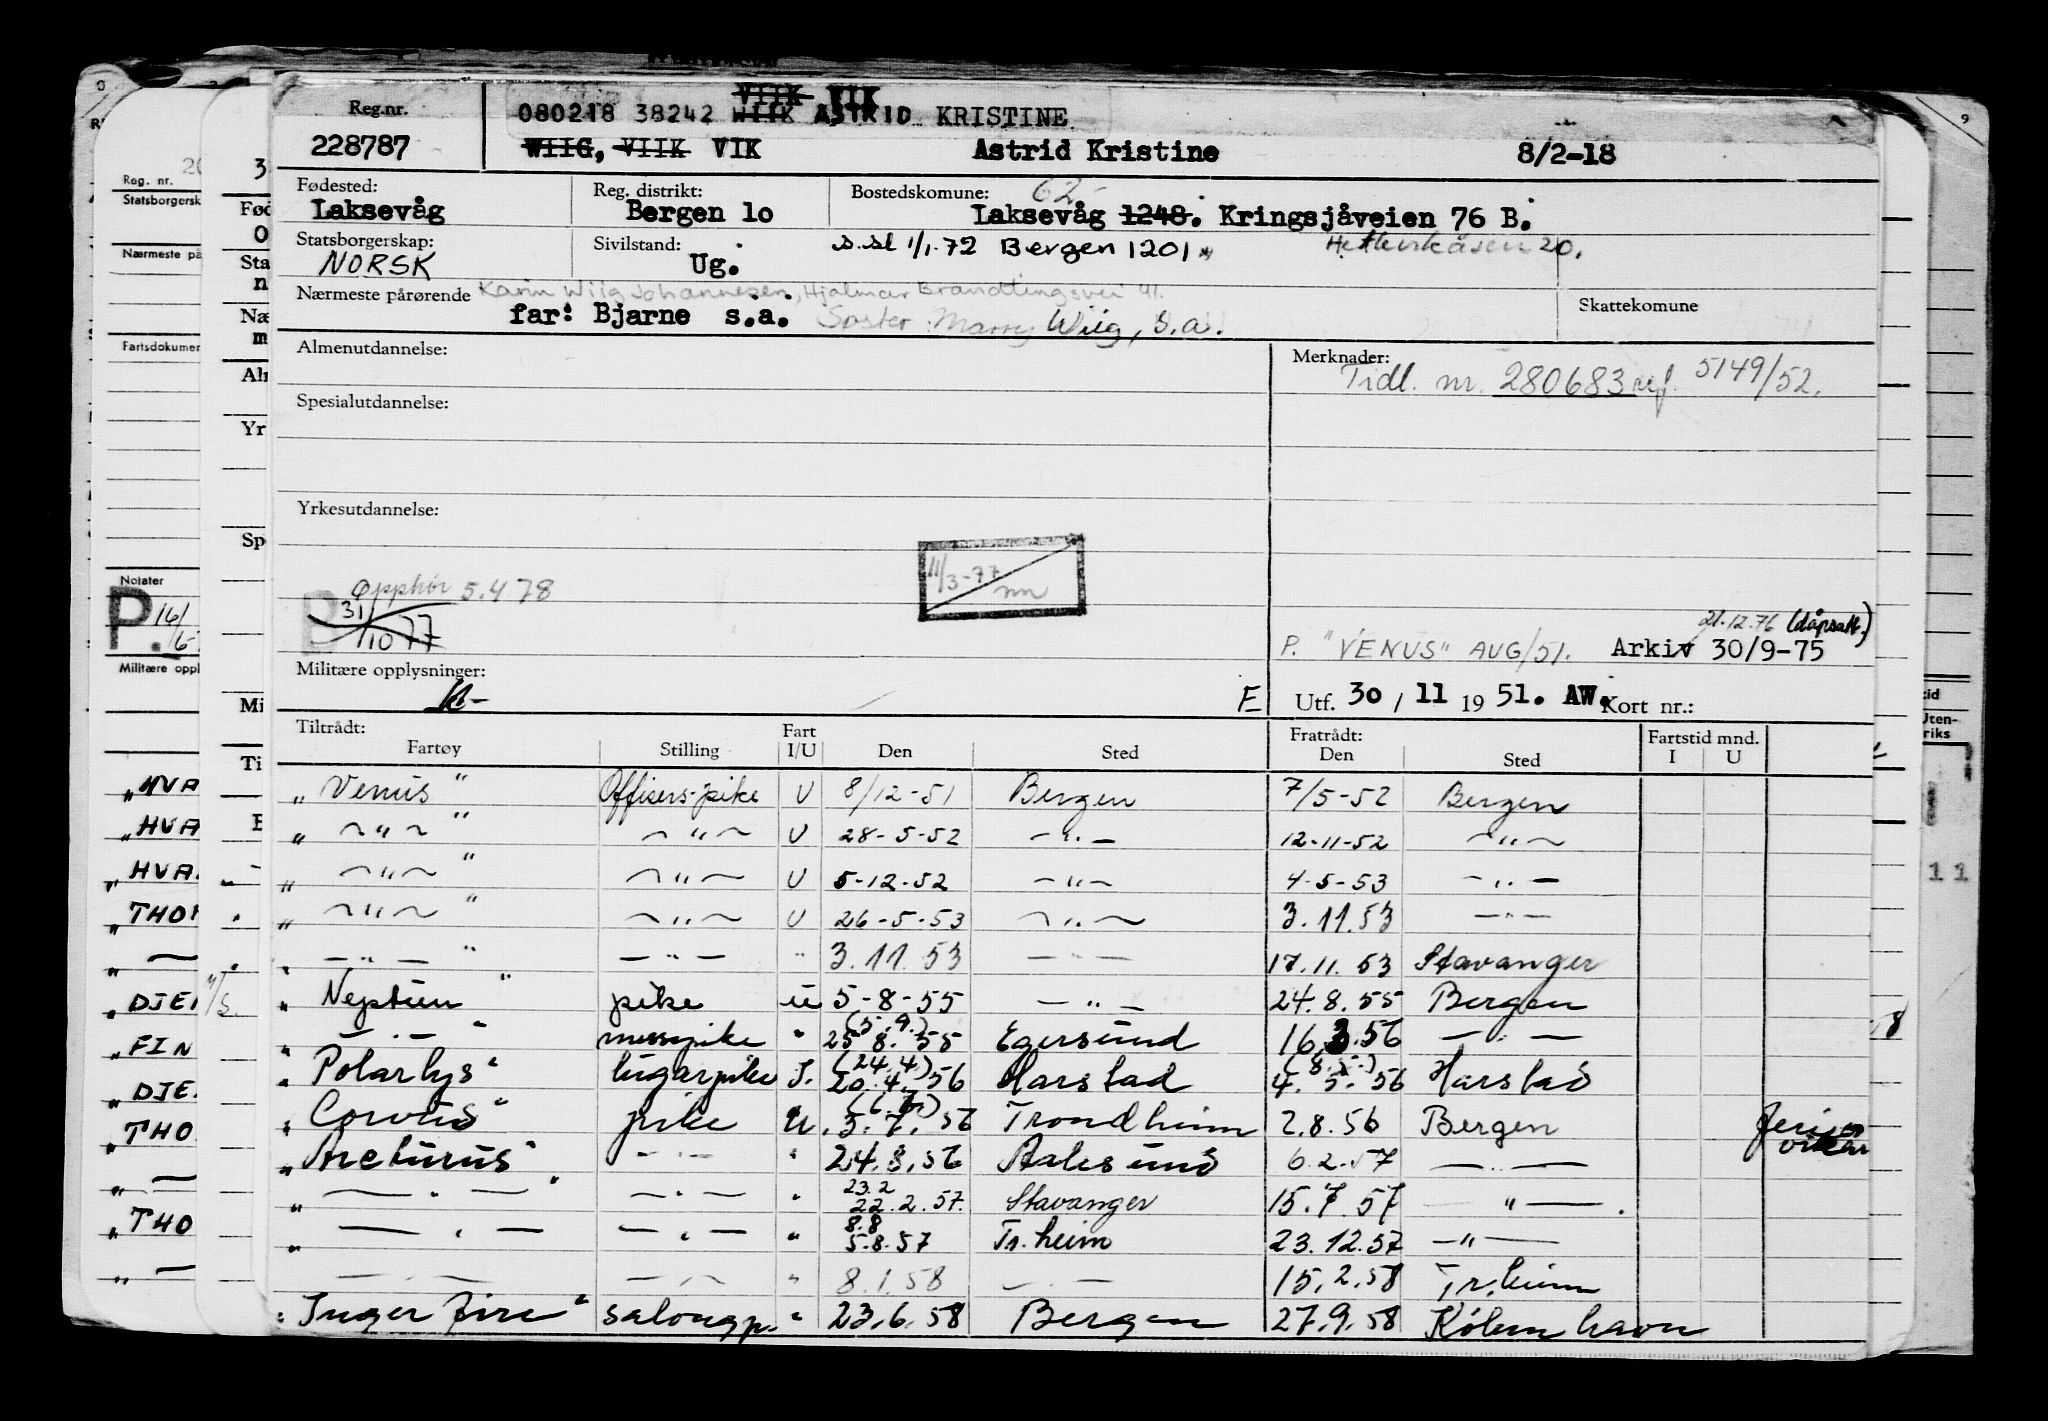 VIIK VIK
Reg.nr. 080218 38242 WIIK ASTRID KRISTINE
228787 WIIG, VIIK VIK Astrid Kristine 8/2-18
Fødested: Reg. distrikt: Bostedskomune: 62-
Laksevåg Bergen 10 Laksevåg 1248. Kringsjåveien 76 B.
Statsborgerskap: Sivilstand: s.sl 1/1-72 Bergen 1201 20.
NORSK Ug.
Nærmeste pårørende Karin Wiig Johannesen, Hjalmar Brandtingsvei 41. Skattekomune
far: Bjarne s.a. Søster: Marry Wiig, s.a.
Almenutdannelse: Merknader:
Tidl. nr. 280683 ref. 5149/52.
Spesialutdannelse:
Yrkesutdannelse:
11/3-77 mn
Opphør 5.4.78
P 31/10 77
21.12.76 (dåpsatt.)
P. "VENUS" AUG/51. Arkiv 30/9-75
Militære opplysninger:
E Utf. 30 / 11 19 51. AW. Kort nr.:
Tiltrådt: Fart Fratrådt: Fartstid mnd.
Fartøy Stilling I/U Den Sted Den Sted I U
„ Venus " Offisers-pike U 8/12-51 Bergen 7/5-52 Bergen
„ ~"~ " ~"~ U 28-5-52 -"- 12-11-52 ~"~
„ ~"~ " ~"~ U 5-12-52 -"- 4-5-53 -"-
„ ~"~ " ~"~ U 26-5-53 ~"~ 3.11.53 -"-
„ -"- " -"- " 3.11.53 -"- 17.11.53 Stavanger
„ Neptun " pike u 5-8-55 -"- 24.8.55 Bergen
„ -"- " messepike " 25.8.55 (5.9.) Egersund 16.3.56 -"-
„ Polarlys " lugarpike I. 20.4.56 (24.4) Harstad 4.5.56 (8.5.) Harstad
„ Corvus " pike U. 3.7.56 (6.7.) Trondheim 2.8.56 Bergen Ferievikar
„ Arcturus " -"- " 24.8.56 Aalesund 6.2.57 -"-
„ -"- " -"- " 23.2 22.2.57. Stavanger 15.7.57 -"-
„ -"- -"- " 8.8 5.8.57 Tr.heim 23.12.57 -"-
-"- -"- " 8.1.58 -"- 15.2.58 Tr.heim
„ Inger Fire " salongp. " 23.6.58 Bergen 27.9.58 Kôbenhavn
Reg. nr.
Statsborgersk
Nærmeste på
Fartsdokumen
Notater
P. 16/
Militære oppl
„HVA
„HVA
„HVA
„THO
„ —
„DJE
„FIN
„DJE
„THO
„ —
„THO
„ —
11